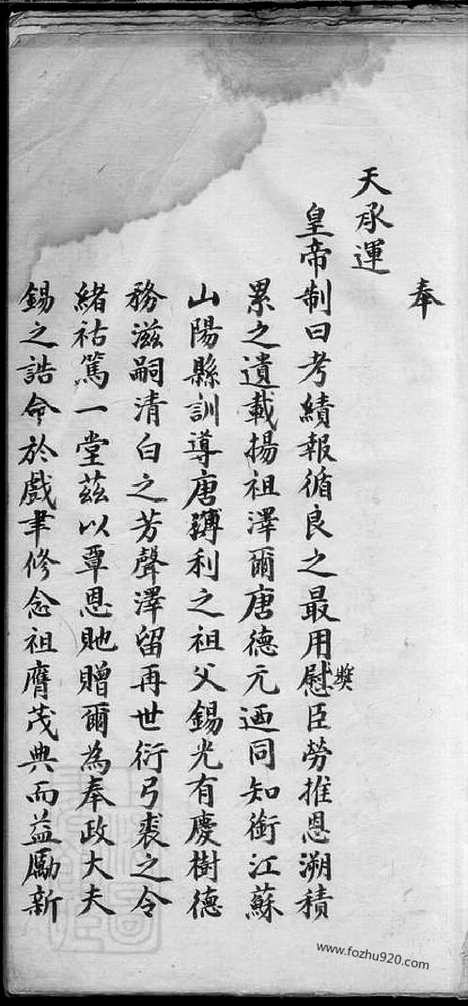 奉
天承運
皇帝制曰考績報循良之最用慰臣勞推恩溯積
獎
累之遺載揚祖澤爾唐德元迺同知銜江蘇
山陽縣訓導唐瑃利之祖父錫光有慶樹德
務滋嗣清白之芳聲澤留再世衍弓裘之令
緒祜篤一堂茲以覃恩貤贈爾為奉政大夫
錫之誥命於戲聿修念祖膺茂典而益勵新
www.fozhu920.com